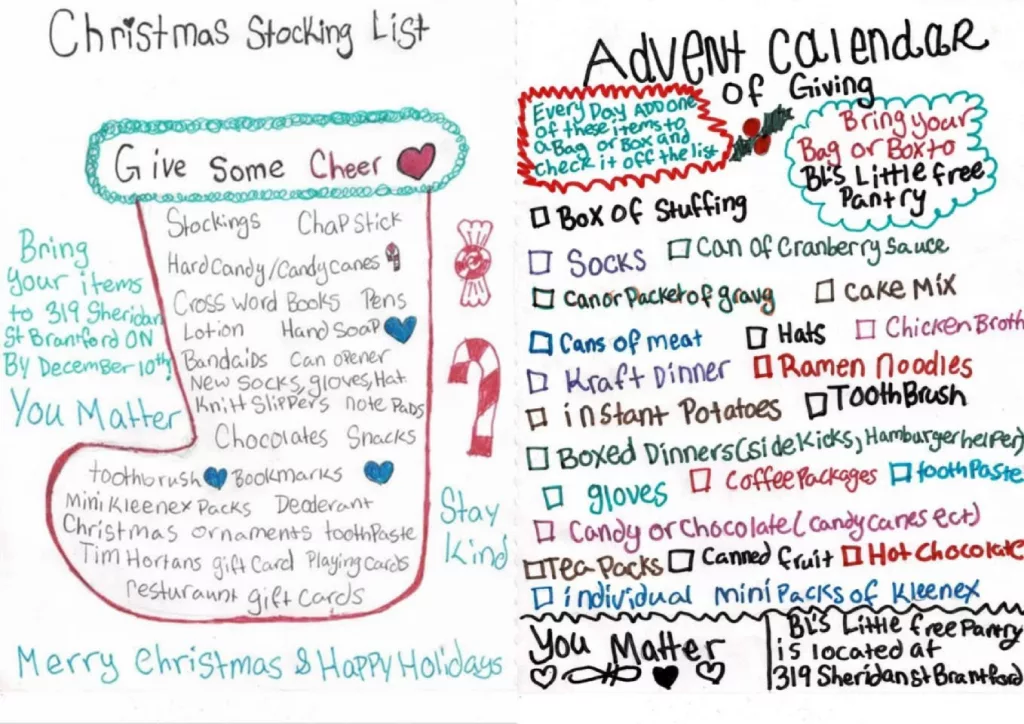 Christmas Stocking List
Give Some Cheer
Stockings Chapstick
Hard Candy/Candy canes
Cross word Books Pens
Lotion Hand Soap
Bandaids Can opener
New Socks, gloves, Hat
Knitt Slippers note Pads
Chocolates Snacks
toothbrush Bookmarks
Mini Kleenex Packs Deoderant
Christmas ornaments toothPaste
Tim Hortans gift Card Playing cards
resturaunt gift Cards
Bring
your items
to 319 Sheridan
St Brantford ON
By December 10th!
You Matter
Stay
Kind
Merry Christmas & Happy Holidays
Advent Calendar
of Giving
Every Day ADD one
of these items to
a Bag or Box and
check it off the list
Bring your
Bag or Box to
BL's Little free
Pantry
Box of Stuffing
Socks Can of Cranberry Sauce
Can or Packet of gravy Cake Mix
Cans of meat Hats Chicken Broth
Kraft Dinner Ramen Noodles
instant Potatoes ToothBrush
Boxed Dinners (side Kicks, Hamburger helper)
gloves Coffee Packages toothPaste
Candy or Chocolate (candy canes ect)
Tea Packs Canned fruit Hot Chocolate
individual mini Packs of Kleenex
You Matter
BL's Little free Pantry
is located at
319 Sheridan st Brantford